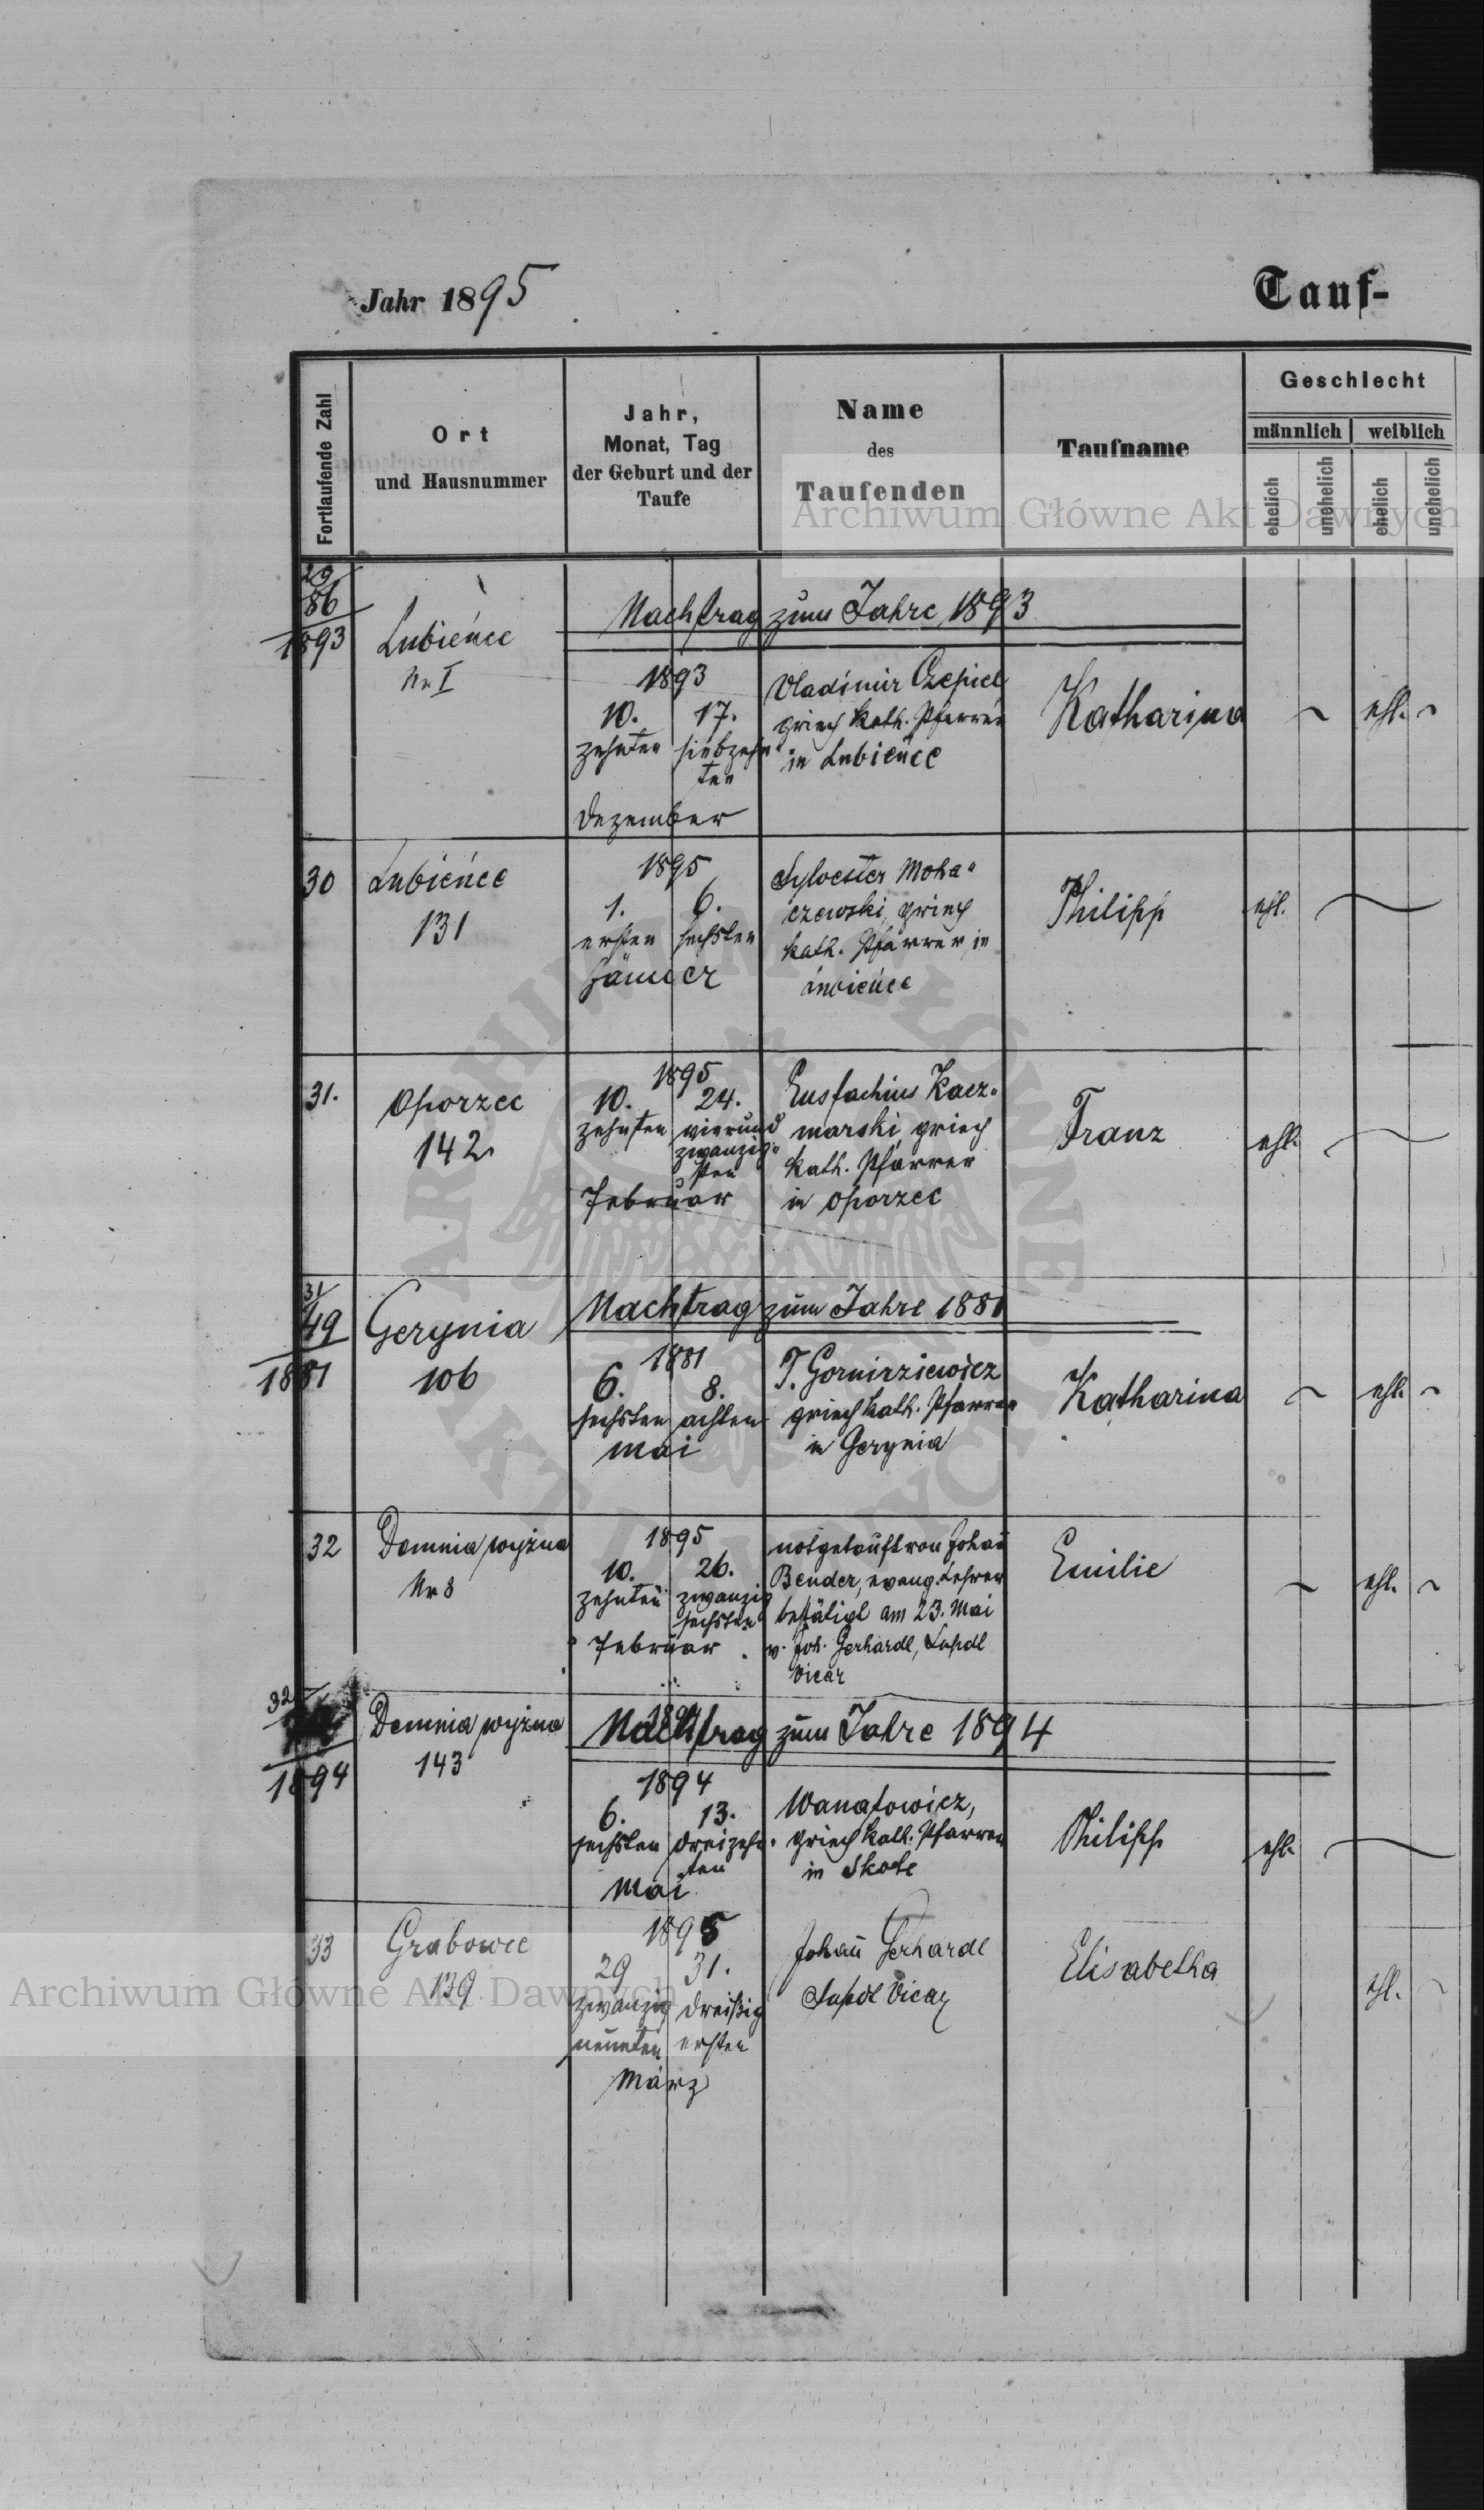 Jahr 1895
Tauf-
Fortlaufende Zahl
Ort
und Hausnummer
Jahr,
Monat, Tag
der Geburt und der
Taufe
Name
des
Taufenden
Taufname
Geschlecht
männlich weiblich
ehelich unehelich ehelich unehelich
Archiwum Główne Akt Dawnych
29/86
1893
Lubieńce
Nr I
Nachtrag zum Jahre 1893
1893
10. 17.
zehnten siebzehn
ten
Dezember
Vladimir Czepiel
griech kath. Pfarrer
in Lubieńce
Katharina
ehl.
30
Lubieńce
131
1895
1. 6.
ersten sechsten
Jänner
Sylvester Moha-
czewski, griech
kath. Pfarrer, in
Lubieńce
Philipp
ehl.
31.
Oporzec
142
1895
10. 24.
zehnten vierund
zwanzig-
sten
Februar
Eustachius Kacz-
marski, griech
kath. Pfarrer
in Oporzec
Franz
ehl.
31/49
1881
Gerynia
106
Nachtrag zum Jahre 1881
1881
6. 8.
sechsten achten
Mai
griech kath. Pfarrer
in Gerynia
Katharina
ehl.
32
Demnia wyżna
Nr 8
1895
10. 26.
zehnten zwanzig
sechsten
Februar
notgetauft von Johañ
Bender, evang. Lehrer
bestätigt am 23. Mai
v. Joh. Gerhardt, Supdt
Vicar
Emilie
ehl.
32
1894
Demnia wyżna
143
Nachtrag zum Jahre 1894
1894
6. 13.
sechsten dreizehn-
ten
Mai
Wanatowicz,
griech kath. Pfarrer
in Skole
Philipp
ehl.
33
Grabowce
139
1895
29 31.
zwanzig dreißig
neunten ersten
März
Johañ Gerhardt
Supdt Vicar
Elisabetha
ehl.
Archiwum Główne Akt Dawnych